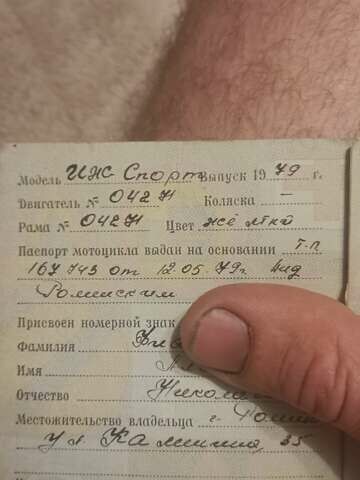 Модель ИЖС Спорт Выпуск 1979 г.
Двигатель № 0427 Коляска —
Рама № 0427 Цвет
Паспорт мотоцикла выдан на основании т.п
167 743 от 12.05.79г.
Роменским
Присвоен номерной знак
Фамилия
Имя
Отчество
Местожительство владельца г.
ул Калинина, 35